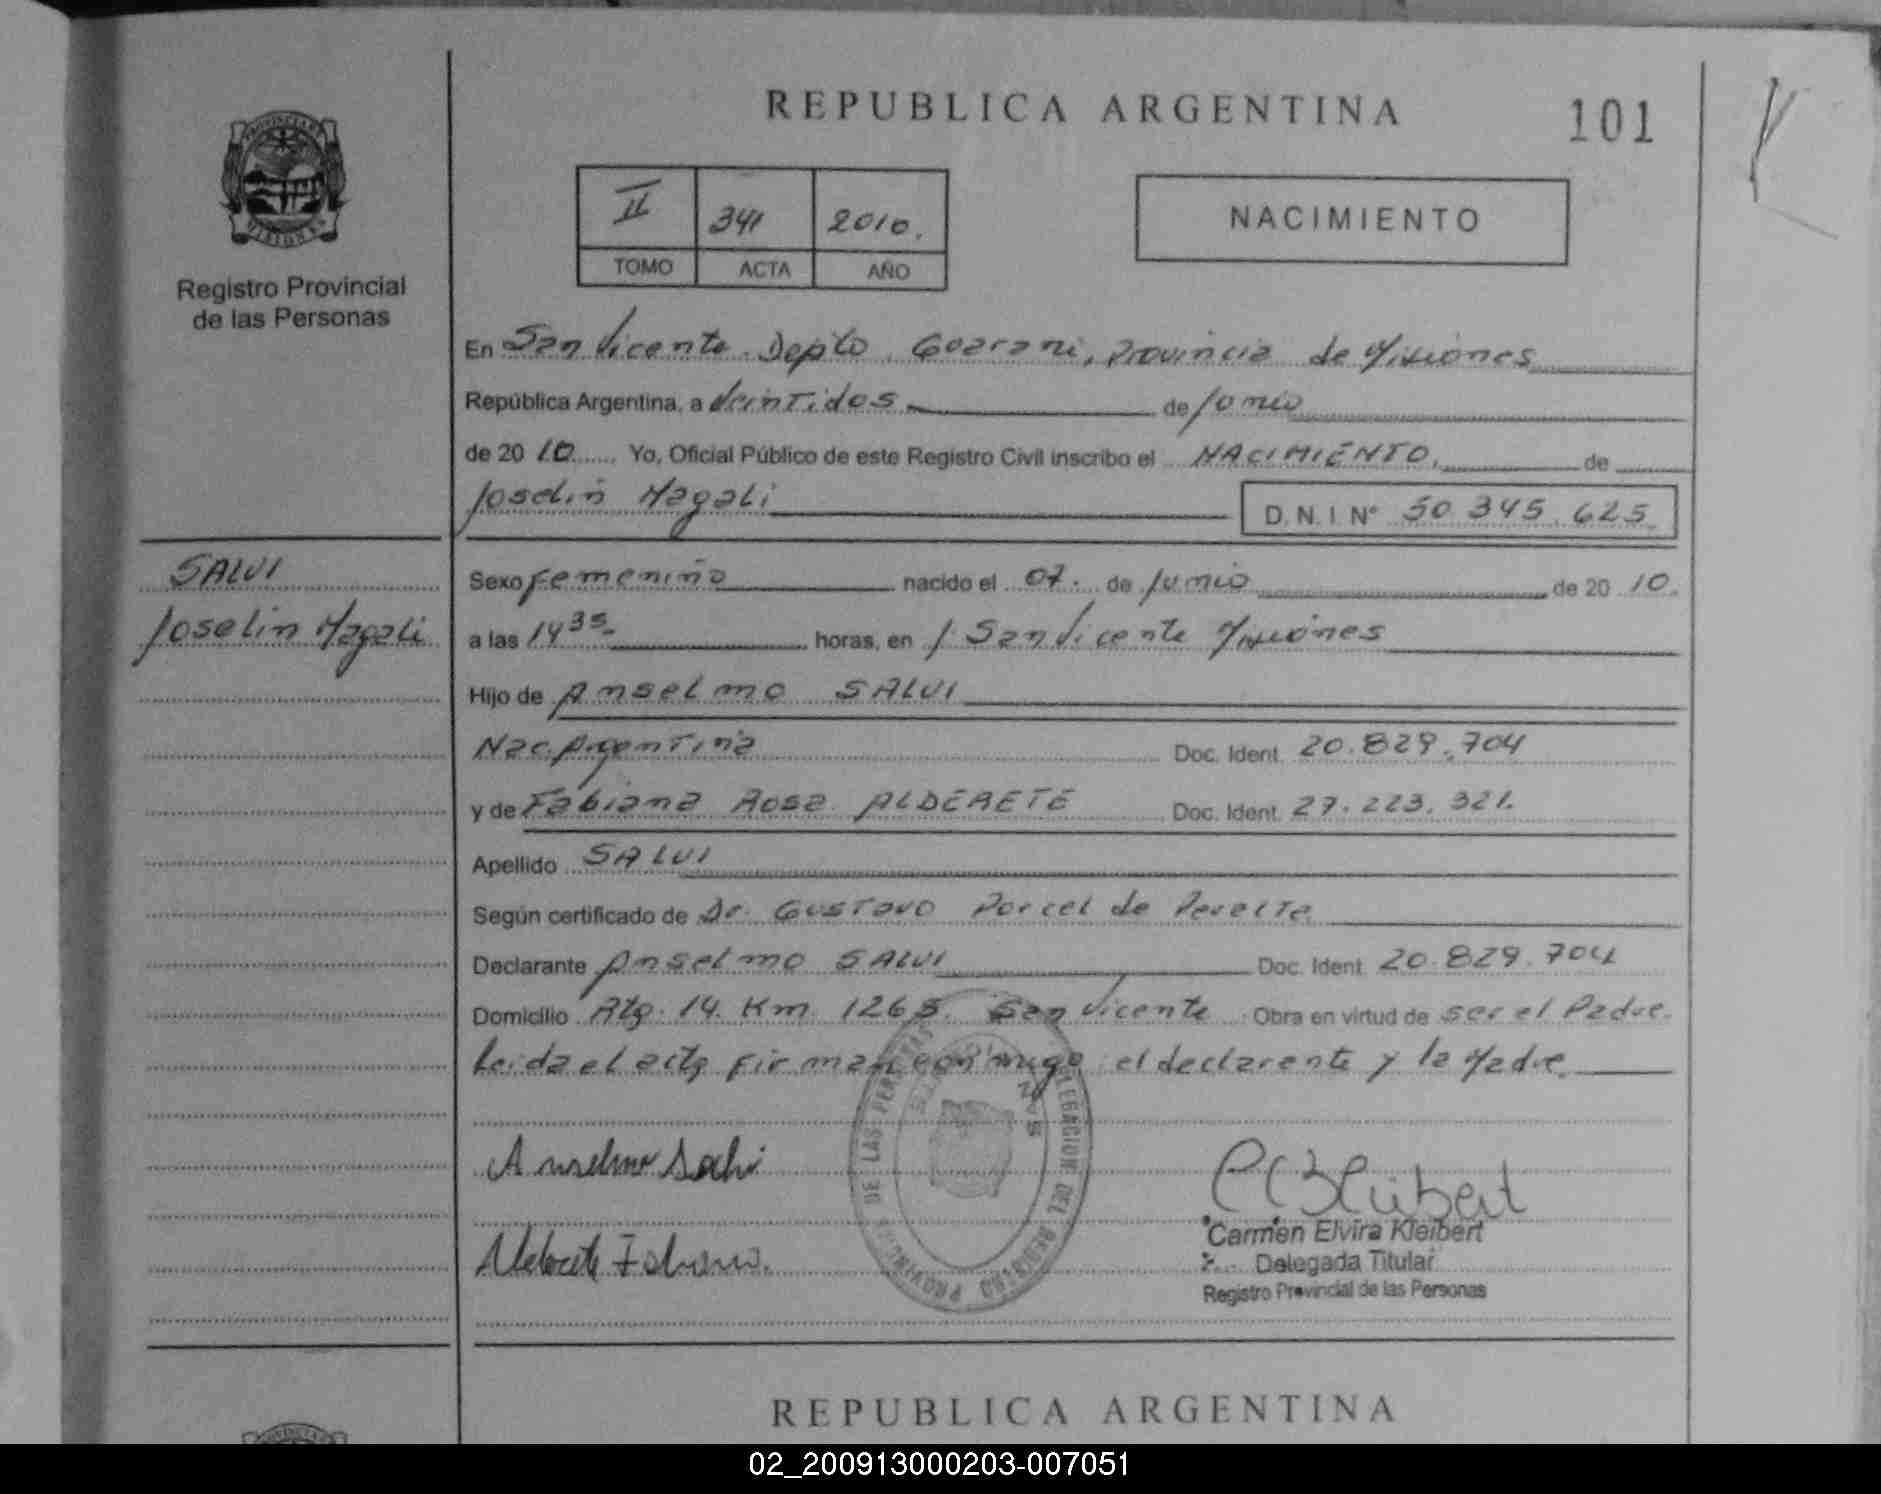 REPUBLICA ARGENTINA
101
PROVINCIA DE
MISIONES
Registro Provincial
de las Personas
II 341 2010.
TOMO ACTA AÑO
NACIMIENTO
En San Vicente Depto Guarani, Provincia de Misiones
República Argentina, a Veintidos de Junio
de 20 10 Yo, Oficial Público de este Registro Civil inscribo el NACIMIENTO, de
Joselin Magali
D.N.I. N° 50.345.625
SALVI
Joselin Magali
Sexo Femenino nacido el 07. de Junio de 20 10.
a las 14 35 horas, en San Vicente Misiones
Hijo de Anselmo SALVI
Nac. Argentina Doc. Ident. 20.829.704
y de Fabiana Rosa ALDERETE Doc. Ident. 27.223.321.
Apellido SALVI
Según certificado de Dr. Gustavo Porcel de Peralta
Declarante Anselmo SALVI Doc. Ident 20.829.704
Domicilio Rtg. 14 Km 1265 San Vicente Obra en virtud de ser el Padre.
Leida el acta firman conmigo el declarante y la Madre.
Anselmo Salvi
Alderete Fabiana.
DELEGACION DEL REGISTRO PROVINCIAL DE LAS PERSONAS
Carmen Elvira Kleibert
Delegada Titular
Registro Provincial de las Personas
REPUBLICA ARGENTINA
02_200913000203-007051